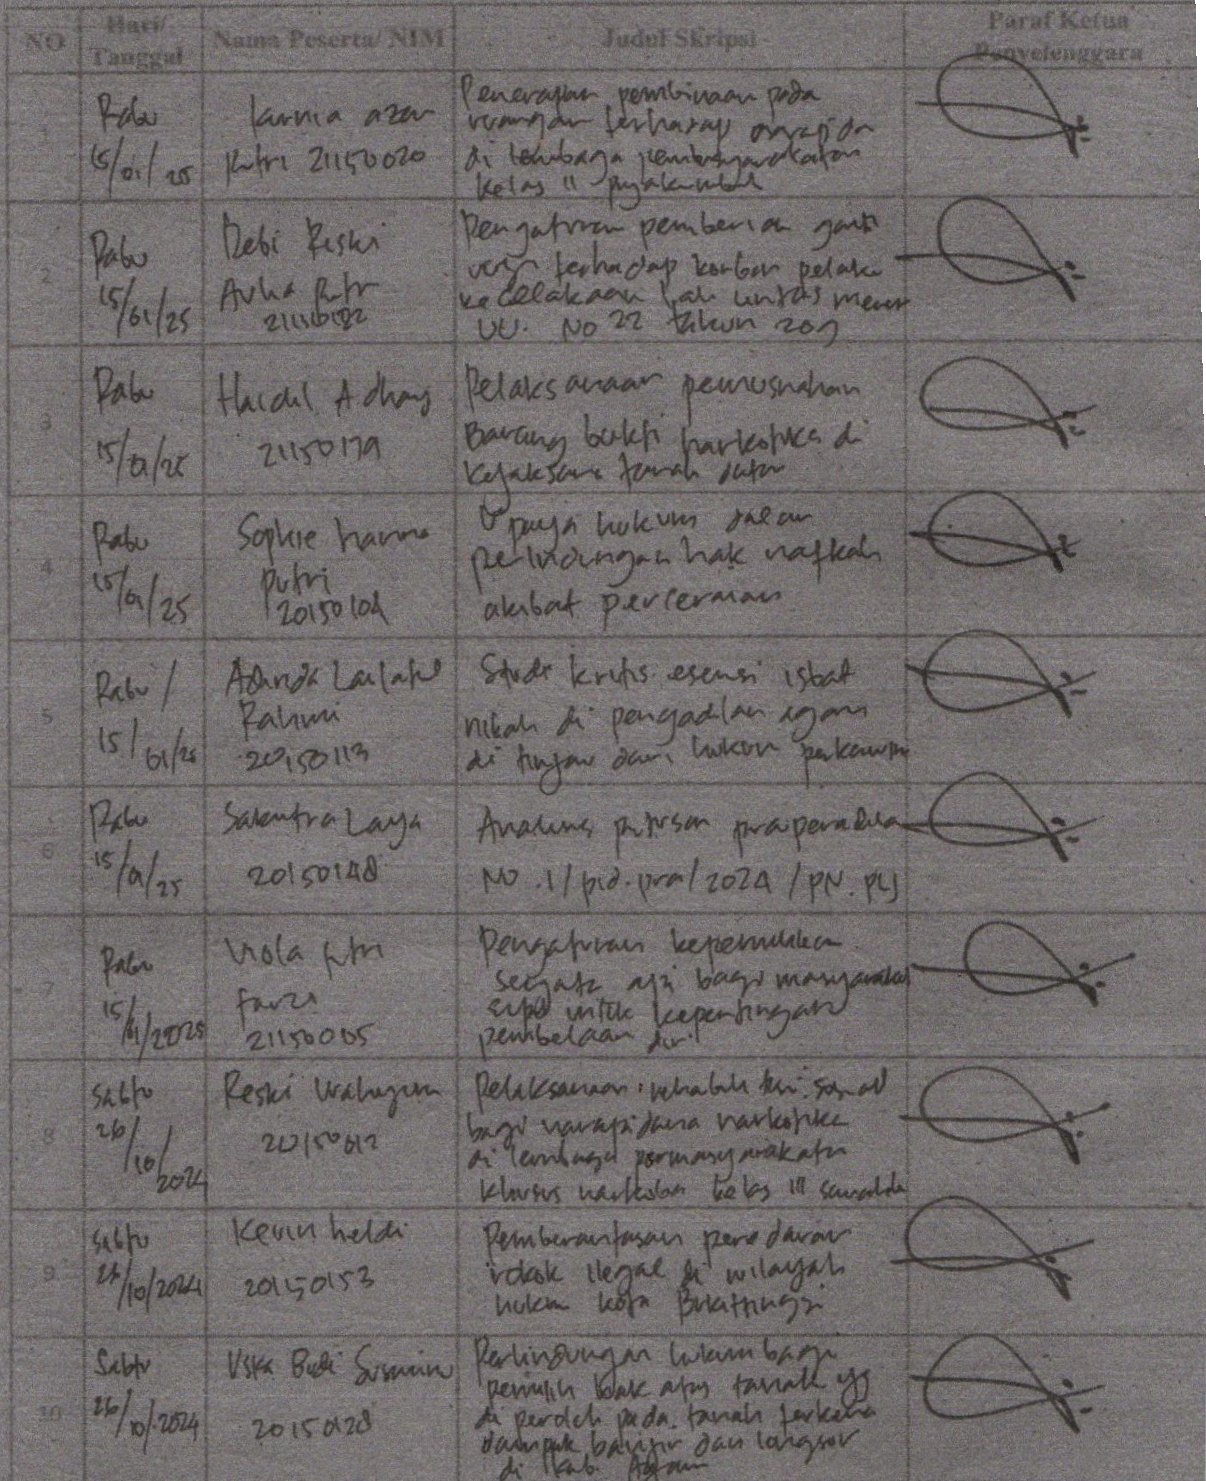 NO
Hari/
Tanggal
Nama Peserta/ NIM
Judul Skripsi
Paraf Ketua
Penyelenggara
1
Rabu
15/01/25
kurnia azar
Putri 21150020
Penerapan pembinaan pada
ruangan terhadap
di lembaga pemasyarakatan
kelas II payakumbuh
2
Rabu
15/01/25
Debi Reski
Putri
Pengaturan pemberian ganti
rugi terhadap korban pelaku
kecelakaan lalu lintas menur
UU. No 22 tahun 2009
3
Rabu
15/01/25
Haidil Adhang
21150179
Pelaksanaan pemusnahan
Barang bukti narkotika di
Kejaksaan tanah datar
4
Rabu
15/01/25
Sophie hanna
putri
20150104
Upaya hukum dalam
perlindungan hak nafkah
akibat perceraian
5
Rabu /
15/01/25
Adinda Lailatul
Rahmi
20150113
Studi kritis esensi isbat
nikah di pengadilan agama
di tinjau dari hukum perkawin
6
Rabu
15/01/25
Laya
20150148
Analisis putusan praperadila
No.1/pid.pra/2024/PN.plj
7
Rabu
15/01/2025
Viola fitri
21150005
Pengaturan kepemilikan
senjata api bagi masyarakat
sipil untuk kepentingan
pembelaan diri
8
Sabtu
26/10/2024
Reski Wahyuni
20150012
Pelaksanaan rehabilitasi sosial
bagi narapidana narkotika
di lembaga permasyarakatan
khusus narkoba kelas III
9
Sabtu
26/10/2024
Kevin heldi
20150153
Pemberantasan peredaran
rokok ilegal di wilayah
hukum kota Bukittinggi
10
Sabtu
26/10/2024
Budi
20150128
Perlindungan hukum bagi
pemilik hak atas tanah yg
di peroleh pada tanah terkena
dampak banjir dan longsor
di kab. Agam